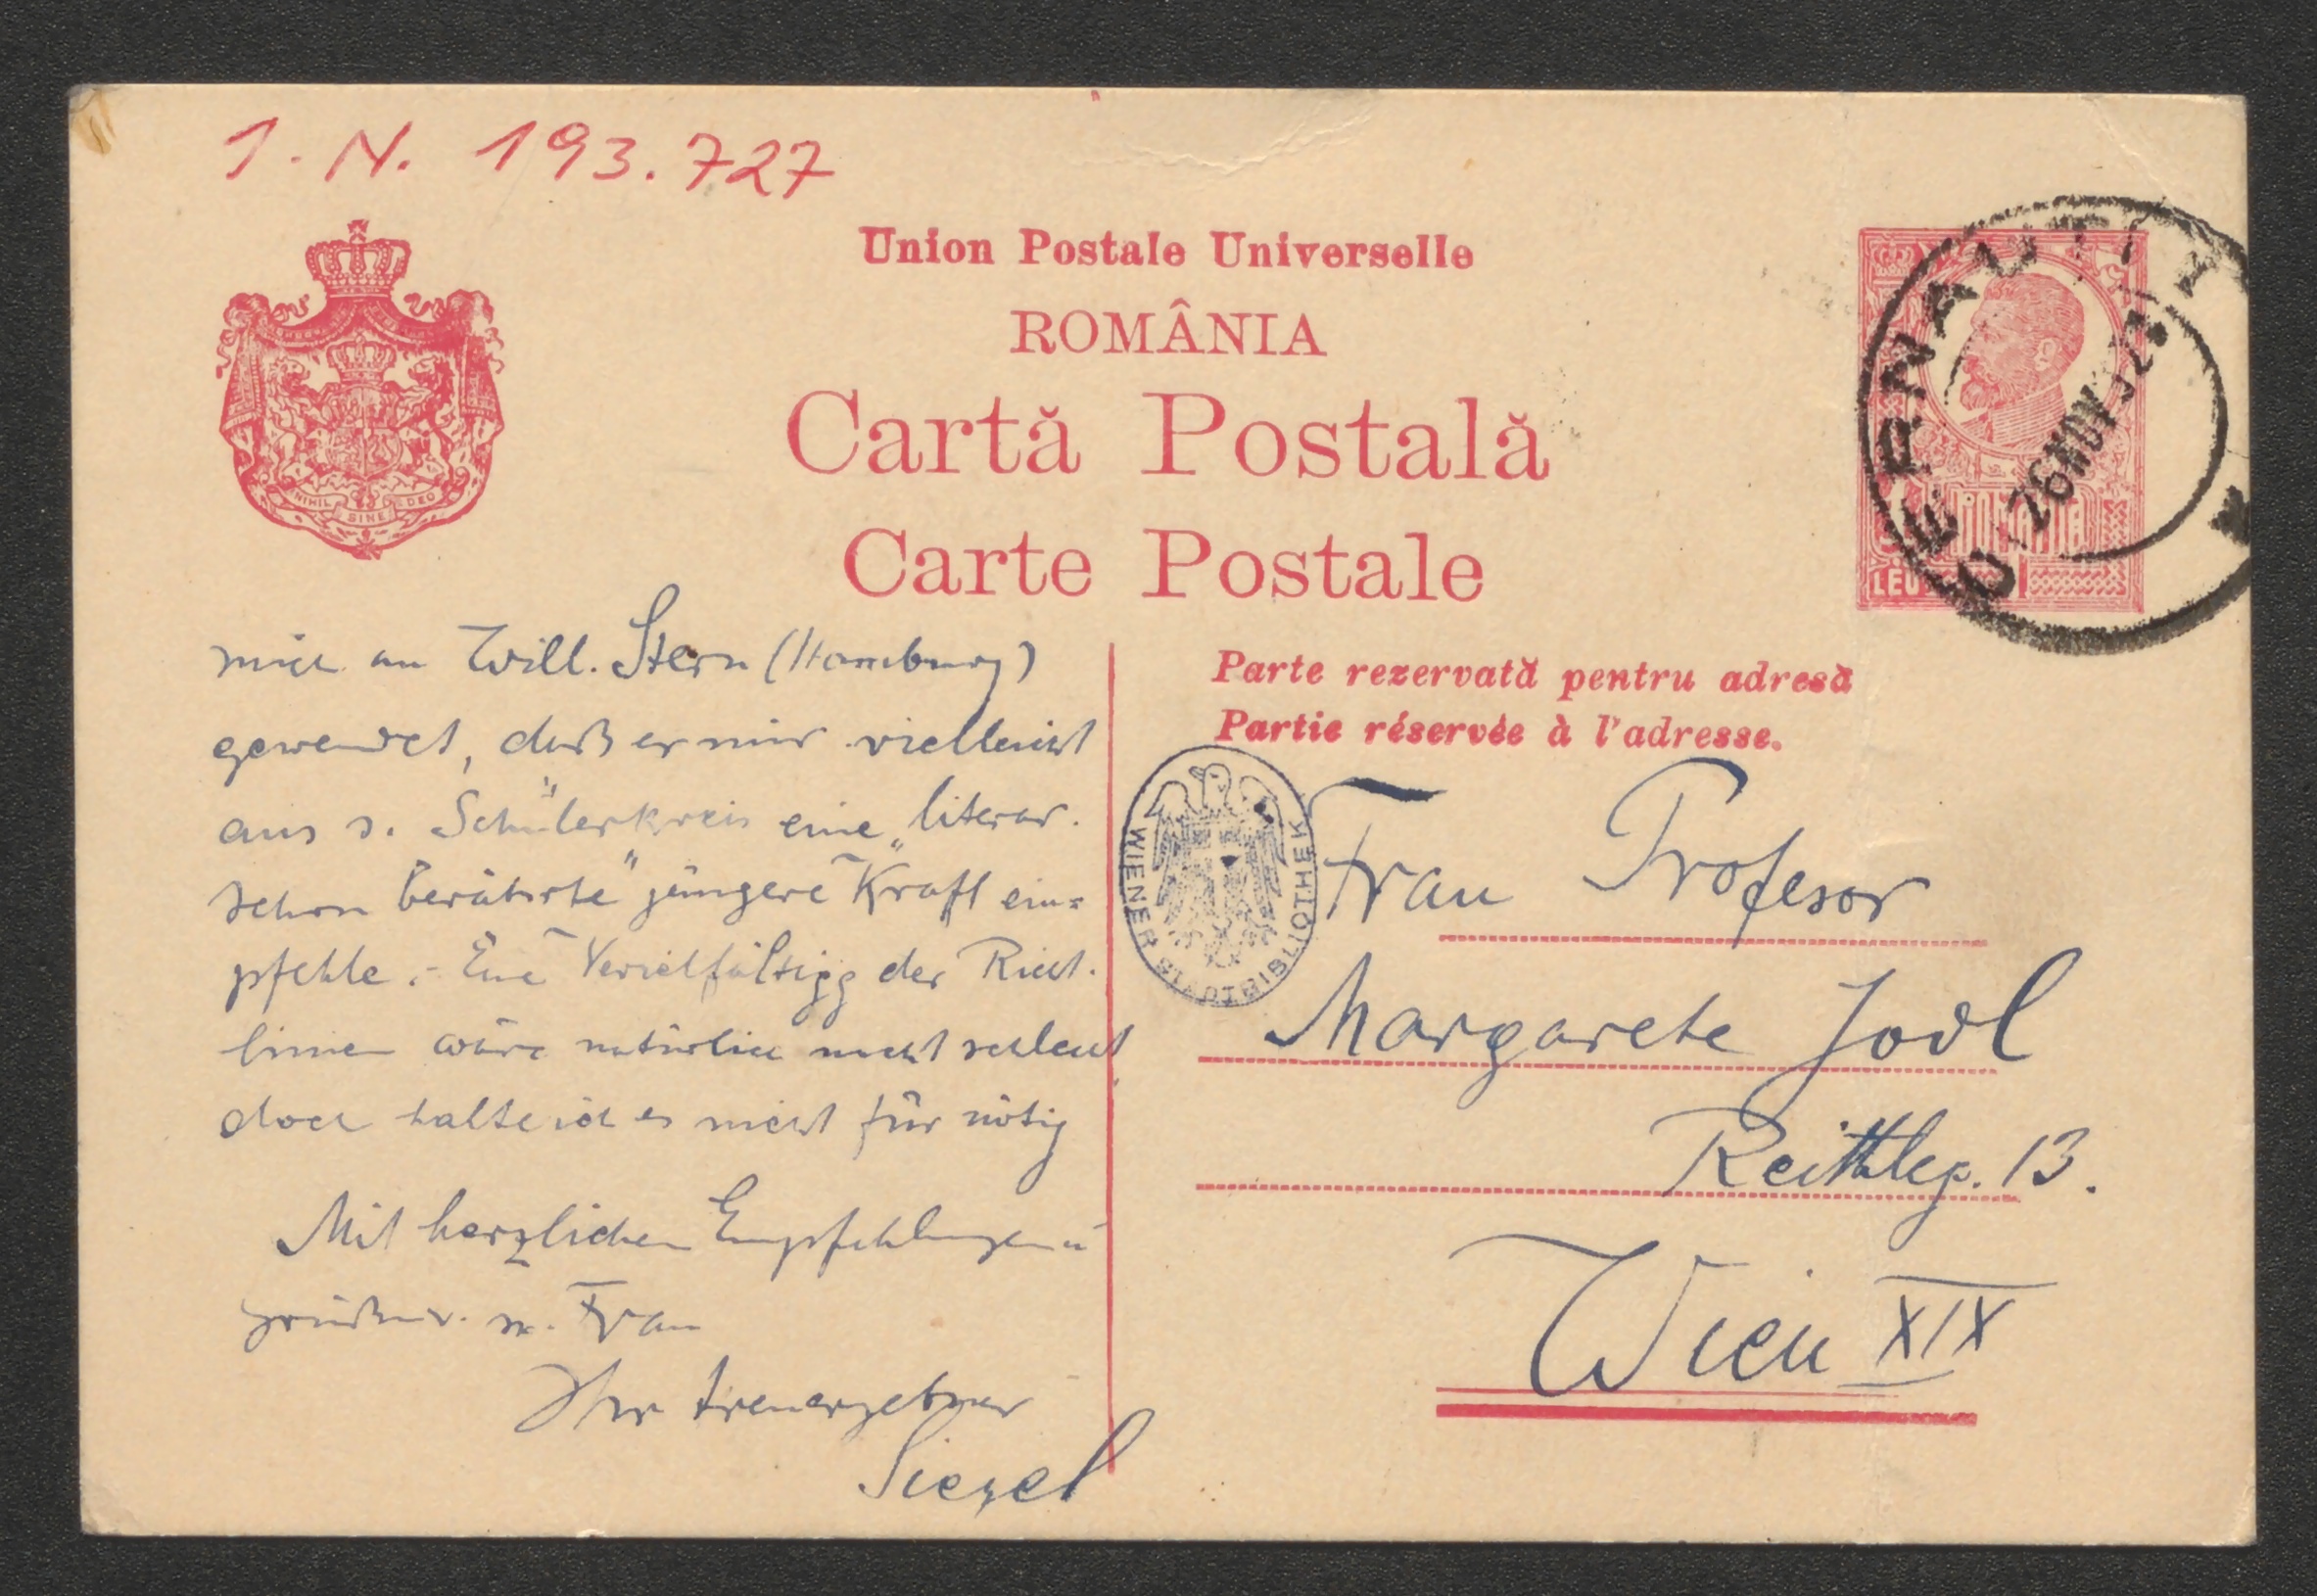 I. N. 193.727
Union Postale Universelle
ROMÂNIA
Cartă Postală
Carte Postale
NIHIL SINE DEO
CERNAUTI
26 NOV
LEU 1
Parte rezervată pentru adresă
Partie réservée à l'adresse.
WIENER STADTBIBLIOTHEK
mich an Will. Stern (Hamburg)
gewendet, daß er mir vielleicht
aus s. Schülerkreis eine „literar.
schon berührte" jüngere Kraft em=
pfehle. – Eine Vervielfältigg der Richt.
linien wäre natürlich nicht schlecht
doch halte ich es nicht für nötig
Mit herzlichen Empfehlungen u
grüßen v. m. Frau
Ihr treuergebener
Siegel
Frau Profesor
Margarete Jodl
Reithleg. 13.
Wien XIX